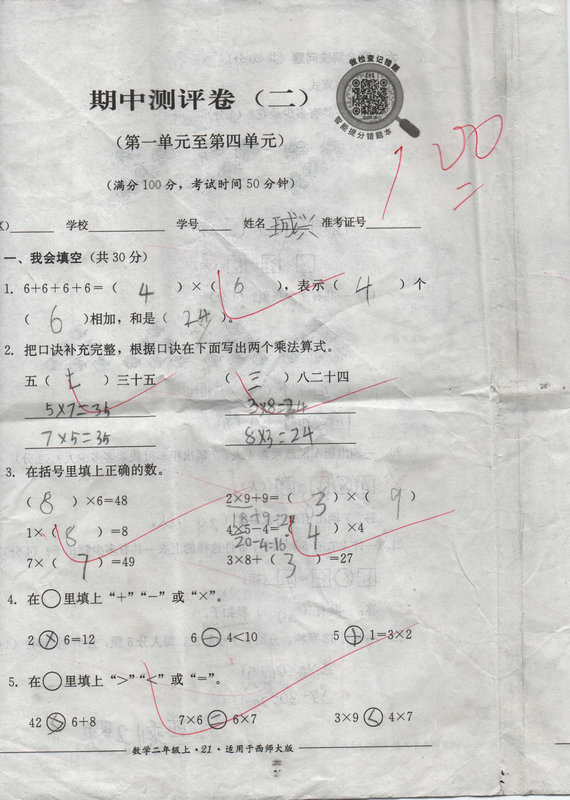 做检查记错题
智能提分错题本
期中测评卷（二）
100
（第一单元至第四单元）
（满分100分，考试时间50分钟）
学校 学号 姓名 准考证号
一、我会填空（共30分）
1. 6+6+6+6=（ 4 ）×（ 6 ），表示（ 4 ）个
（ 6 ）相加，和是（ 24 ）。
2. 把口诀补充完整，根据口诀在下面写出两个乘法算式。
五（七）三十五 （三）八二十四
5×7=35 3×8=24
7×5=35 8×3=24
3. 在括号里填上正确的数。
（ 8 ）×6=48 2×9+9=（ 3 ）×（ 9 ）
18+9=2
1×（ 8 ）=8 4×5-4=（ 4 ）×4
20-4=16
7×（ 7 ）=49 3×8+（ 3 ）=27
4. 在○里填上“+”“-”或“×”。
2 × 6=12 6 - 4<10 5 + 1=3×2
5. 在○里填上“>”“<”或“=”。
42 > 6+8 7×6 = 6×7 3×9 < 4×7
数学二年级上·21·适用于西师大版